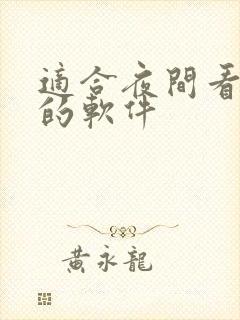 適合夜間看
的軟件
黃永龍